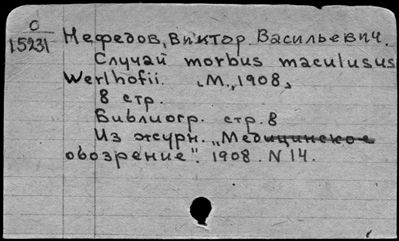 О
15231
Нефедов, Виктор Васильевич.
Случай morbus maculusus
Werlhofii. М., 1908,
8 стр.
Библиогр. стр. 8
Из журн. „Медицинское
обозрение". 1908. N 14.